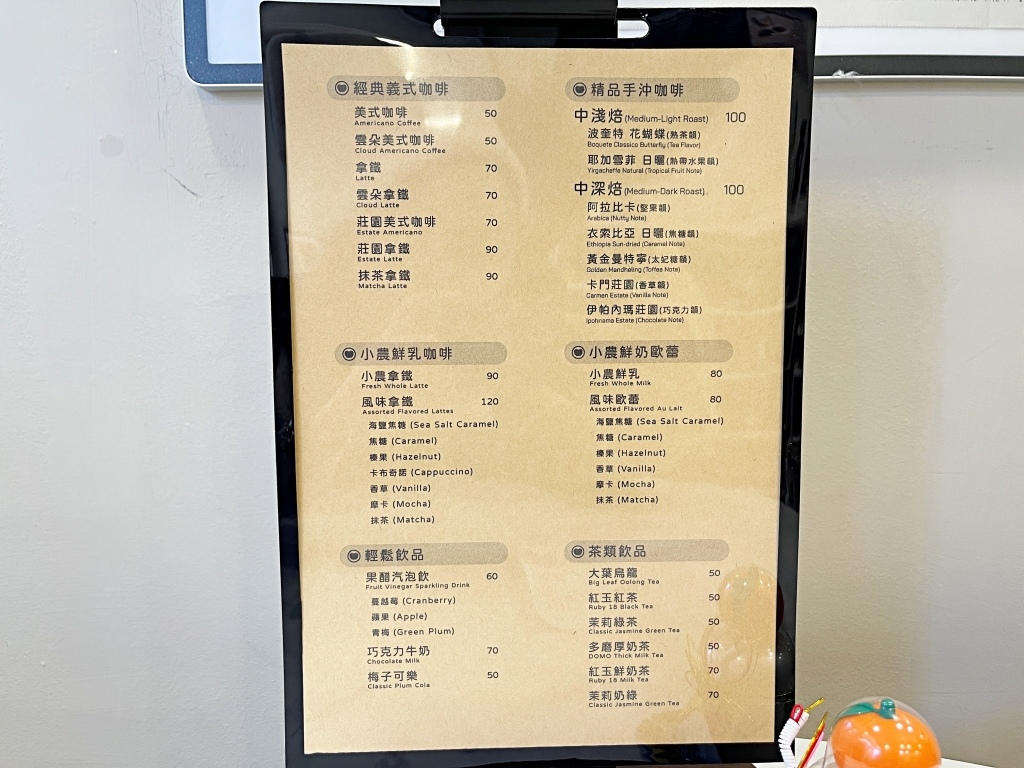 經典義式咖啡
美式咖啡 50
Americano Coffee
雲朵美式咖啡 50
Cloud Americano Coffee
拿鐵 70
Latte
雲朵拿鐵 70
Cloud Latte
莊園美式咖啡 70
Estate Americano
莊園拿鐵 90
Estate Latte
抹茶拿鐵 90
Matcha Latte
精品手沖咖啡
中淺焙(Medium-Light Roast) 100
波奎特 花蝴蝶(熟茶韻)
Boquete Classico Butterfly (Tea Flavor)
耶加雪菲 日曬(熱帶水果韻)
Yirgacheffe Natural (Tropical Fruit Note)
中深焙(Medium-Dark Roast) 100
阿拉比卡(堅果韻)
Arabica (Nutty Note)
衣索比亞 日曬(焦糖韻)
Ethiopia Sun-dried (Caramel Note)
黃金曼特寧(太妃糖韻)
Golden Mandheling (Toffee Note)
卡門莊園(香草韻)
Carmen Estate (Vanilla Note)
伊帕內瑪莊園(巧克力韻)
Ipohnama Estate (Chocolate Note)
小農鮮乳咖啡
小農拿鐵 90
Fresh Whole Latte
風味拿鐵 120
Assorted Flavored Lattes
海鹽焦糖 (Sea Salt Caramel)
焦糖 (Caramel)
榛果 (Hazelnut)
卡布奇諾 (Cappuccino)
香草 (Vanilla)
摩卡 (Mocha)
抹茶 (Matcha)
小農鮮奶歐蕾
小農鮮乳 80
Fresh Whole Milk
風味歐蕾 80
Assorted Flavored Au Lait
海鹽焦糖 (Sea Salt Caramel)
焦糖 (Caramel)
榛果 (Hazelnut)
香草 (Vanilla)
摩卡 (Mocha)
抹茶 (Matcha)
輕鬆飲品
果醋汽泡飲 60
Fruit Vinegar Sparkling Drink
蔓越莓 (Cranberry)
蘋果 (Apple)
青梅 (Green Plum)
巧克力牛奶 70
Chocolate Milk
梅子可樂 50
Classic Plum Cola
茶類飲品
大葉烏龍 50
Big Leaf Oolong Tea
紅玉紅茶 50
Ruby 18 Black Tea
茉莉綠茶 50
Classic Jasmine Green Tea
多磨厚奶茶 50
DOMO Thick Milk Tea
紅玉鮮奶茶 70
Ruby 18 Milk Tea
茉莉奶綠 70
Classic Jasmine Green Tea